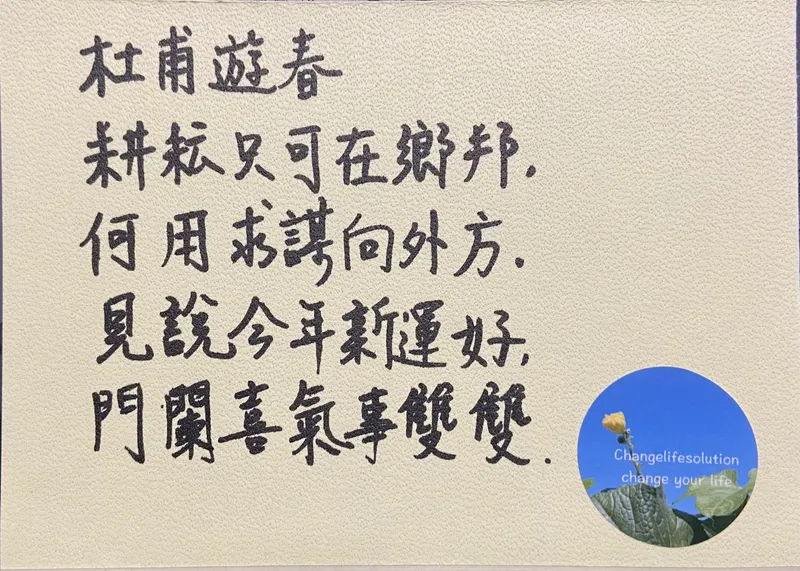 杜甫遊春
耕耘只可在鄉邦.
何用求謀向外方.
見說今年新運好,
門闌喜氣事雙雙.
Changelifesolution
change your life